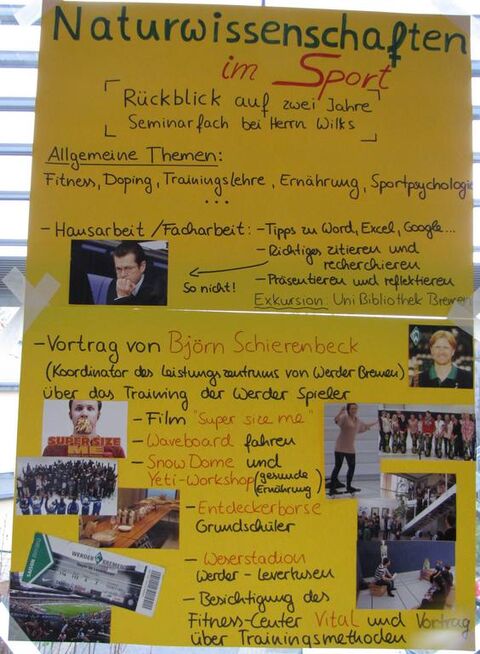 Naturwissenschaften
im Sport
Rückblick auf zwei Jahre
Seminarfach bei Herrn Wilks
Allgemeine Themen:
Fitness, Doping, Trainingslehre, Ernährung, Sportpsychologie
...
- Hausarbeit / Facharbeit: - Tipps zu Word, Excel, Google...
- Richtiges zitieren und
recherchieren
So nicht!
- Präsentieren und reflektieren
Exkursion: Uni Bibliothek Bremen
- Vortrag von Björn Schierenbeck
(Koordinator des Leistungszentrums von Werder Bremen)
über das Training der Werder Spieler
- Film "Super size me"
SUPER SIZE
ME
- Waveboard fahren
- Snow Dome und
Yeti-Workshop (gesunde
Ernährung)
- Entdeckerbörse
Grundschüler
WERDER BREMEN
- Weserstadion
Werder - Leverkusen
- Besichtigung des
Fitness-Center Vital und Vortrag
über Trainingsmethoden